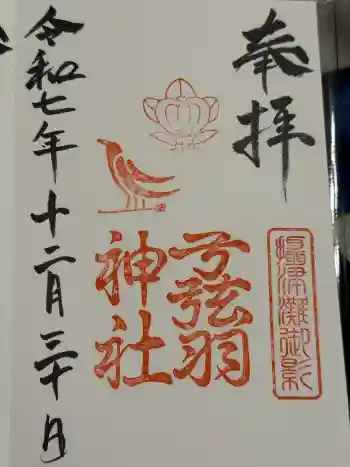 奉拝
攝津灘御影
弓弦羽
神社
令和七年十二月三十日